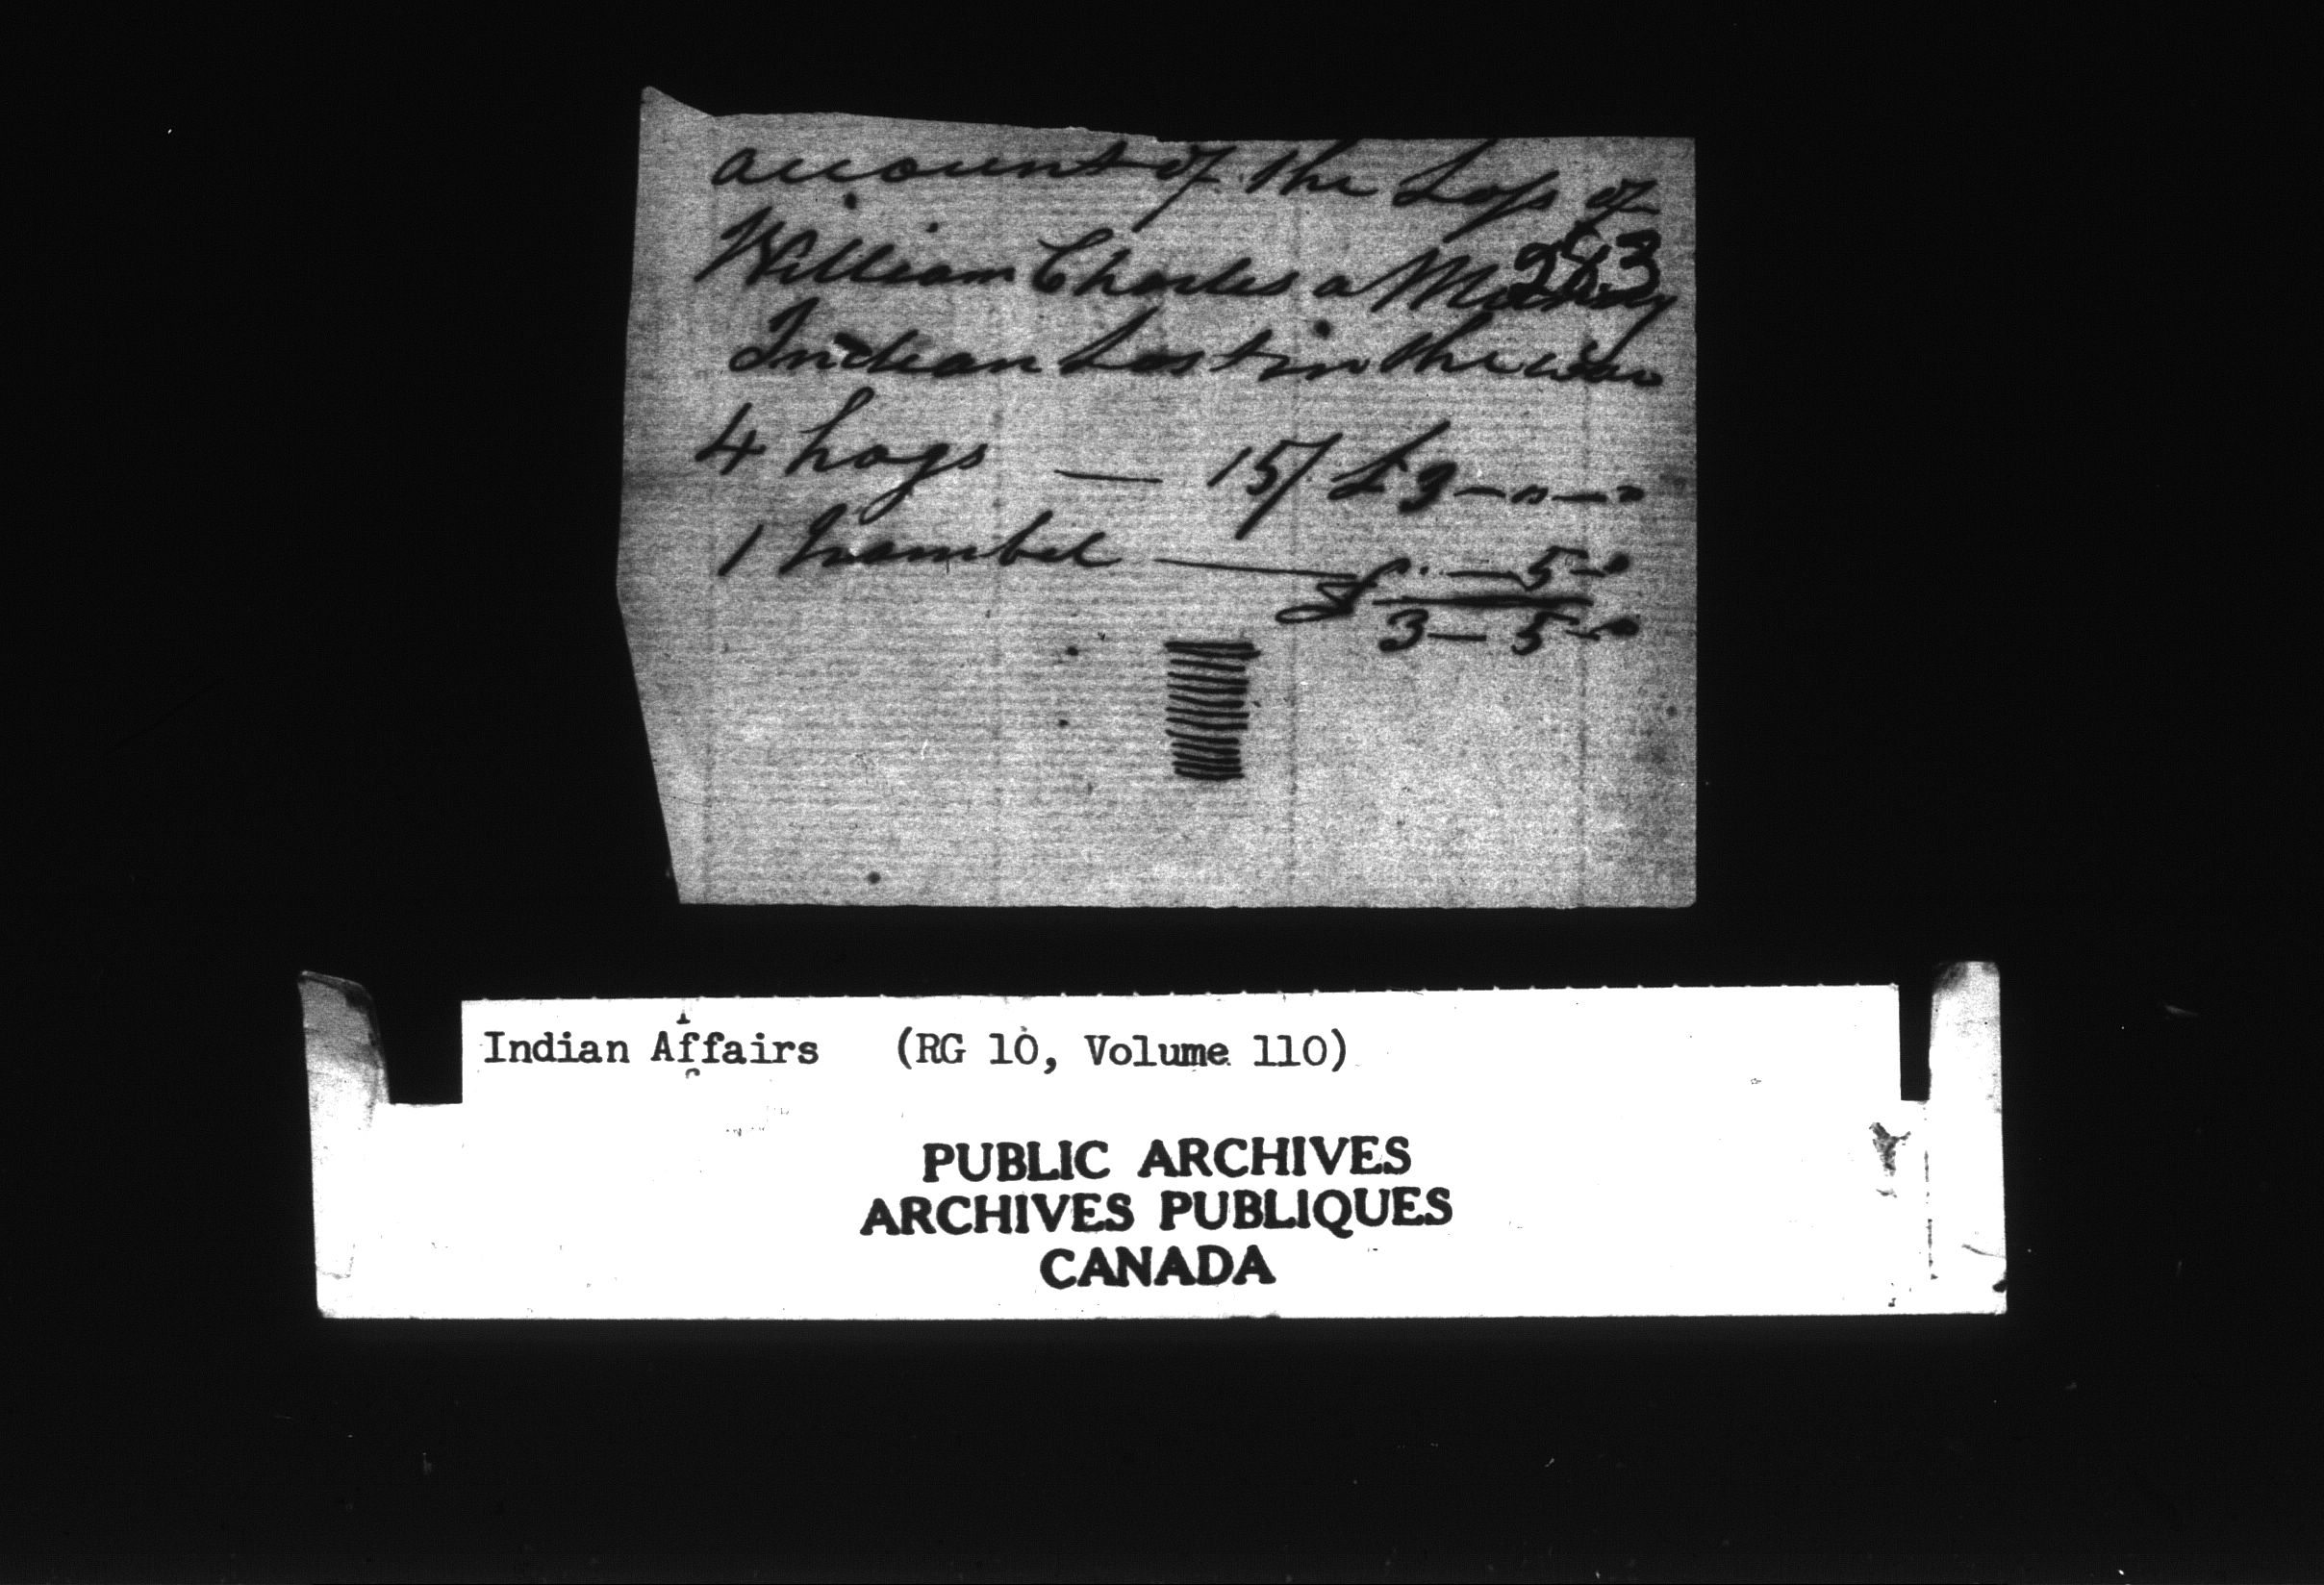 account of the Loss of
William Charles a Muncey
283
Indian Lost in the war
4 hogs — 15/ £3-"-"
1 Trambel — " - 5-"
£ 3-5-"
Indian Affairs (RG 10, Volume 110)
PUBLIC ARCHIVES
ARCHIVES PUBLIQUES
CANADA